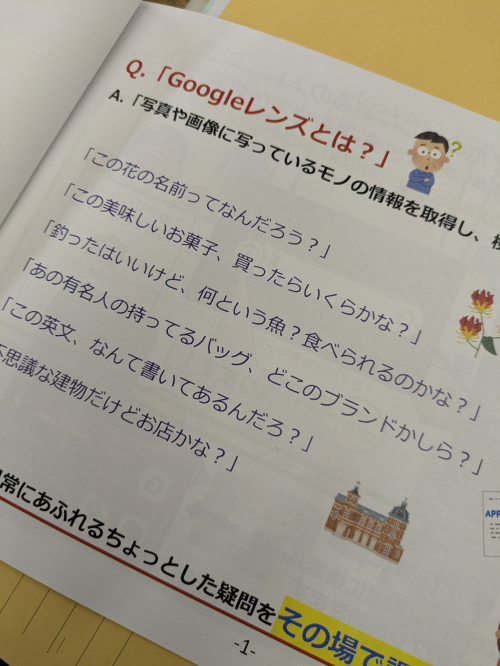 Q.「Googleレンズとは？」
A.「写真や画像に写っているモノの情報を取得し、検
「この花の名前ってなんだろう？」
「この美味しいお菓子、買ったらいくらかな？」
「釣ったはいいけど、何という魚？食べられるのかな？」
「あの有名人の持ってるバッグ、どこのブランドかしら？」
「この英文、なんて書いてあるんだろ？」
不思議な建物だけどお店かな？」
常にあふれるちょっとした疑問をその場で
APP
-1-